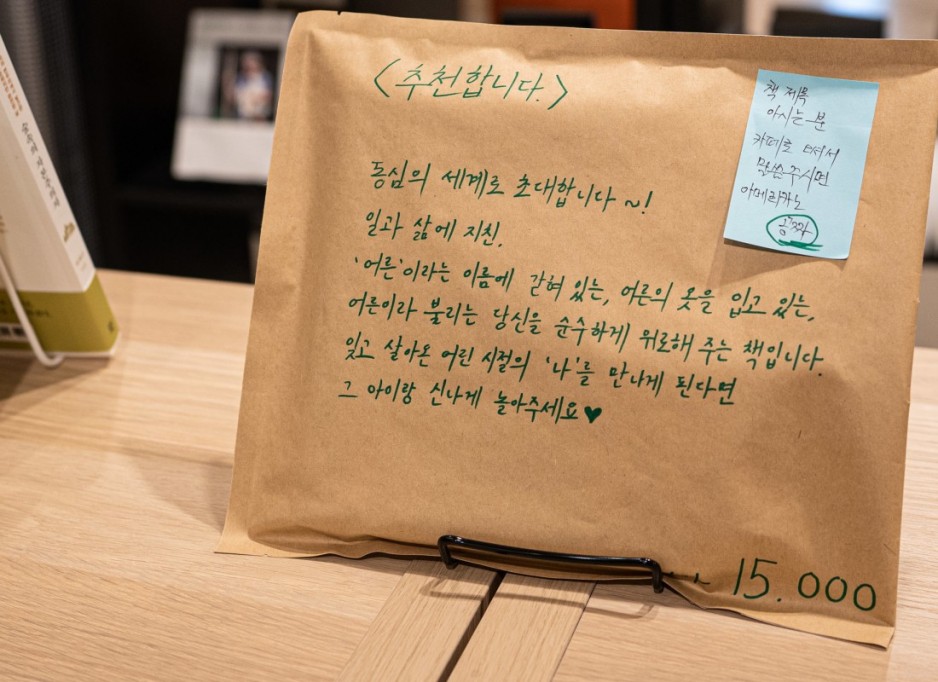 <추천합니다.>
동심의 세계로 초대합니다 ~!
일과 삶에 지친.
'어른'이라는 이름에 갇혀 있는, 어른의 옷을 입고 있는,
어른이라 불리는 당신을 순수하게 위로해 주는 책입니다.
잊고 살아온 어린 시절의 '나'를 만나게 된다면
그 아이랑 신나게 놀아주세요♥
책 제목
아시는 분
카페로 오셔서
말씀주시면
아메리카노
공짜
15.000